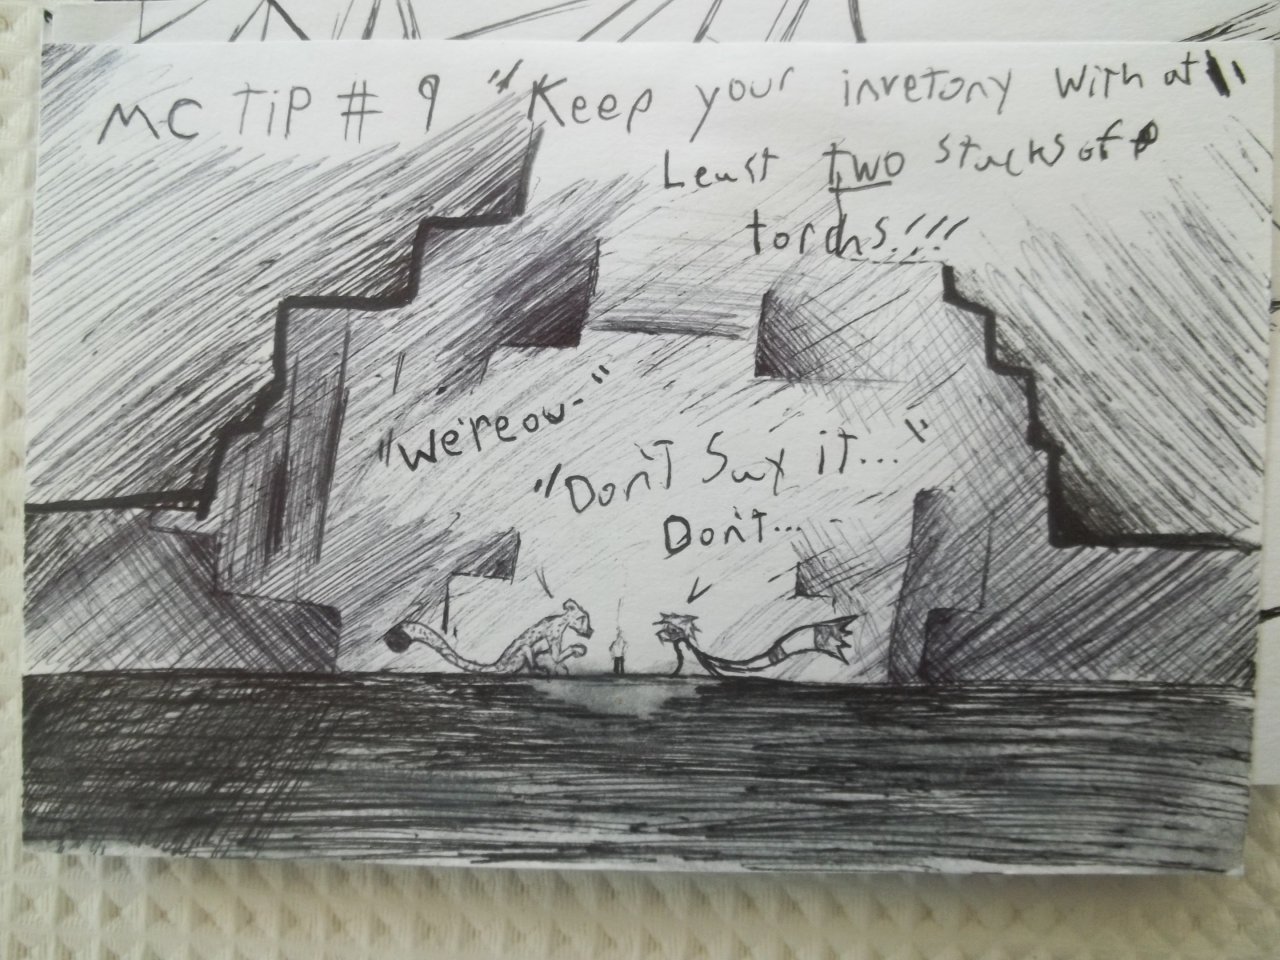 MC TiP # 9 "Keep your invetony with at
Least two stacks of
torchs!!!
"We're ou-"
"Don't Say it..."
Don't...